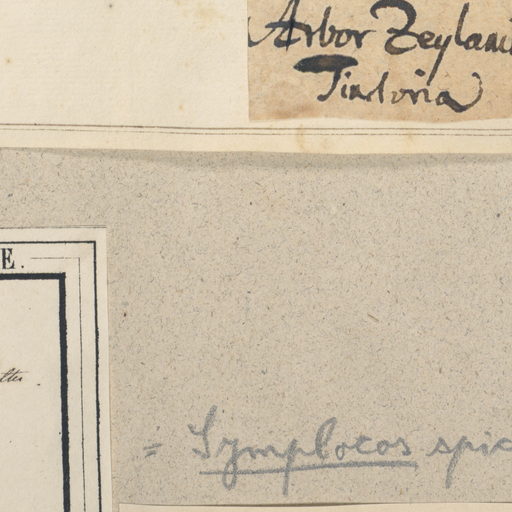 Arbor Zeylani
Tinctoria
E.
= Symplocos spic